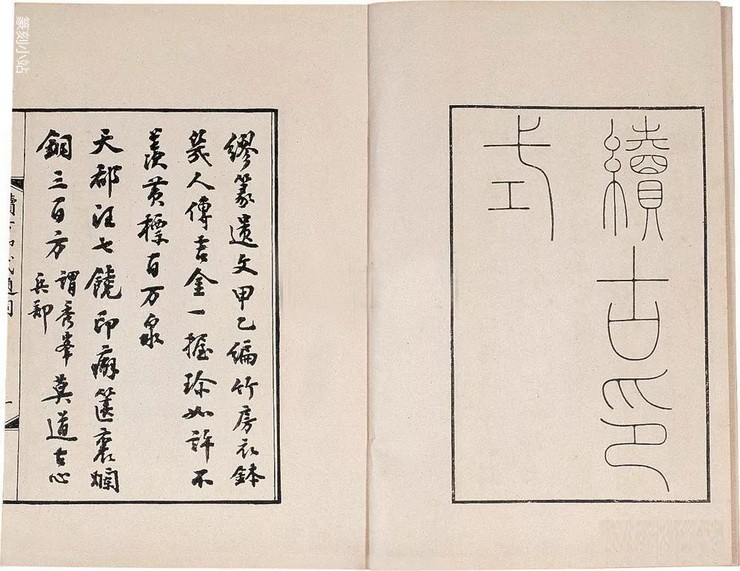 續古印
式
繆篆遺文甲乙編竹房衣鉢
幾人傳吉金一握珍如許不
羨黃標百万泉
天都汪七饒印癖篋裏爛
銅三百方謂秀峯兵部莫道古心
篆刻小站